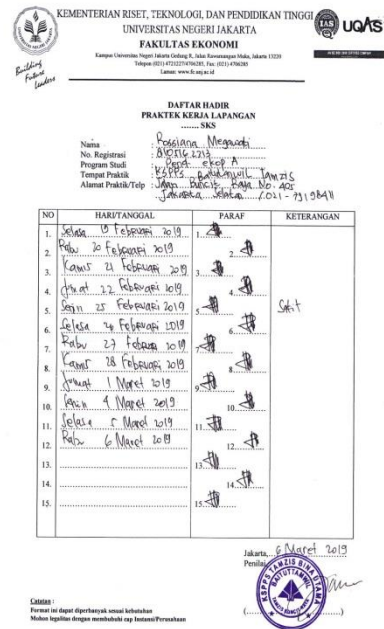 KEMENTERIAN RISET, TEKNOLOGI, DAN PENDIDIKAN TINGGI
UNIVERSITAS NEGERI JAKARTA
FAKULTAS EKONOMI
Kampus Universitas Negeri Jakarta Gedung R, Jalan Rawamangun Muka, Jakarta 13220
Telepon (021) 4721227/4706285, Fax: (021) 4706285
Laman: www.fe.unj.ac.id
Building
Future
Leaders
UQAS
DAFTAR HADIR
PRAKTEK KERJA LAPANGAN
....... SKS
Nama : Rossiana Megawati
No. Registrasi :
Program Studi : Pend. ekop A
Tempat Praktik : KSPPS Baituttamwil Tamzis
Alamat Praktik/Telp : Jalan Buncit Raya No. 405
Jakarta Selatan / 021 - 79198411
NO HARI/TANGGAL PARAF KETERANGAN
1. Selasa 19 Februari 2019 1.
2. Rabu 20 Februari 2019 2.
3. Kamis 21 Februari 2019 3.
4. Jumat 22 Februari 2019 4.
5. Senin 25 Februari 2019 5. Sakit
6. Selasa 26 Februari 2019 6.
7. Rabu 27 Februari 2019 7.
8. Kamis 28 Februari 2019 8.
9. Jumat 1 Maret 2019 9.
10. Senin 4 Maret 2019 10.
11. Selasa 5 Maret 2019 11.
12. Rabu 6 Maret 2019 12.
13. 13.
14. 14.
15. 15.
Jakarta, 6 Maret 2019
Penilai,
KSPPS TAMZIS BINA UTAMA
BAITUTTAMWIL
(....................)
Catatan :
Format ini dapat diperbanyak sesuai kebutuhan
Mohon legalitas dengan membubuhi cap Instansi/Perusahaan